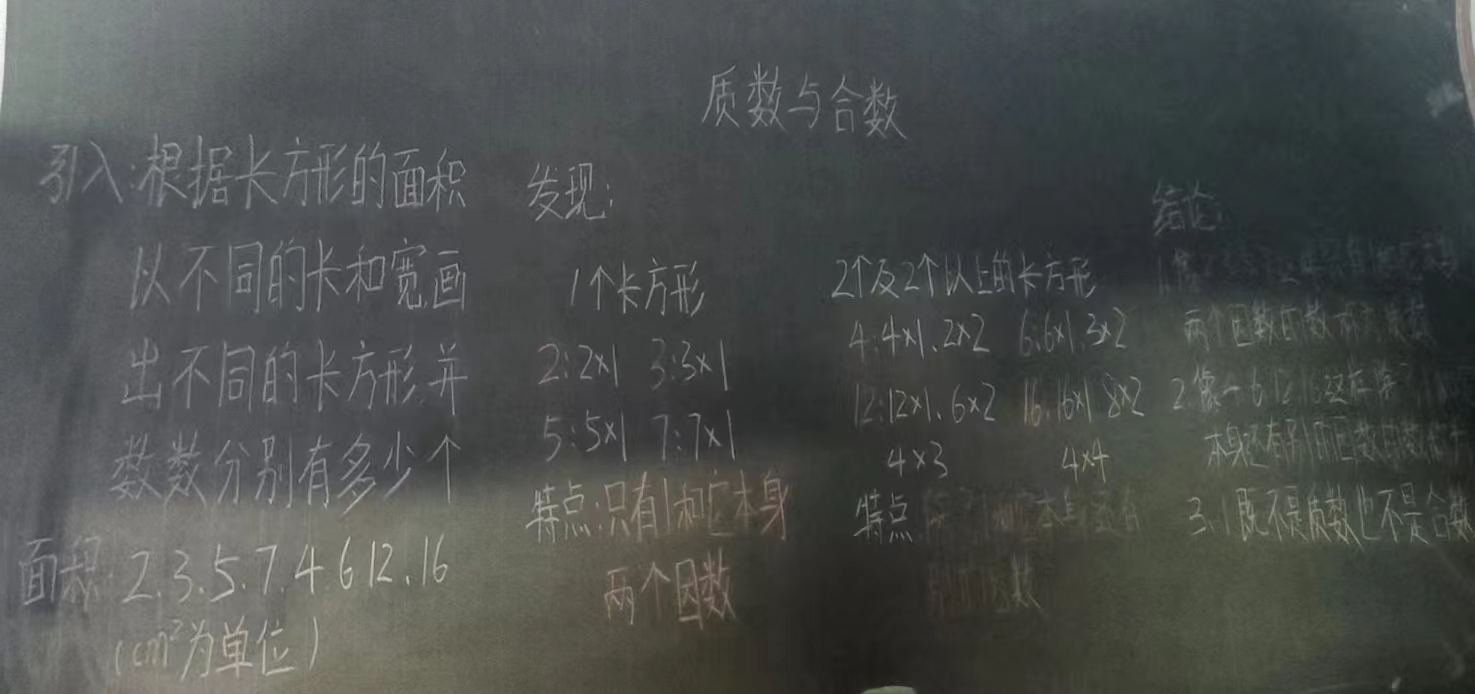 质数与合数
引入:根据长方形的面积
以不同的长和宽画
出不同的长方形并
数数分别有多少个
面积:2.3.5.7.4.6 12、16
(cm²为单位)
发现:
1个长方形
2:2×1 3:3×1
5:5×1 7:7×1
特点:只有1和它本身
两个因数
2个及2个以上的长方形
4:4×1、2×2 6:6×1、3×2
12:12×1、6×2 16:16×1 8×2
4×3 4×4
特点
本身还有
因数
结论:
两个因数的数
2.像 6 12 16这样
本身还有别的因数的数
3.1既不是质数也不是合数